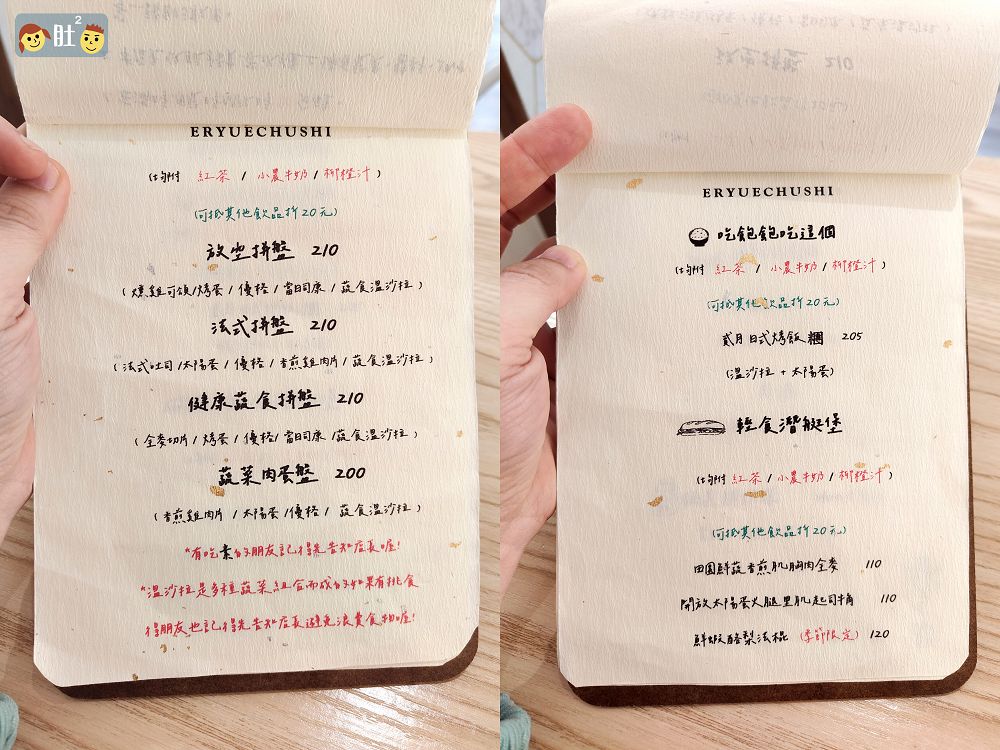 肚2
ERYUECHUSHI
(均附 紅茶 / 小農牛奶 / 柳橙汁)
(可抵其他飲品折20元)
放空拼盤 210
(燻雞可頌/烤蛋/優格/當日司康/蔬食溫沙拉)
法式拼盤 210
(法式吐司/太陽蛋/優格/香煎雞肉片/蔬食溫沙拉)
健康蔬食拼盤 210
(全麥切片/烤蛋/優格/當日司康/蔬食溫沙拉)
蔬菜肉蛋盤 200
(香煎雞肉片/太陽蛋/優格/蔬食溫沙拉)
*有吃素的朋友記得先告知店長喔!
*溫沙拉是多種蔬菜組合而成的如果有挑食
得朋友也記得先告知店長避免浪費食物喔!
ERYUECHUSHI
吃飽飽吃這個
(均附 紅茶 / 小農牛奶 / 柳橙汁)
(可抵其他飲品折20元)
貳月日式烤飯糰 205
(溫沙拉 + 太陽蛋)
輕食潛艇堡
(均附 紅茶 / 小農牛奶 / 柳橙汁)
(可抵其他飲品折20元)
田園鮮蔬香煎肌胸肉全麥 110
開放太陽蛋火腿里肌起司牛角 110
鮮蝦酪梨法棍 (季節限定) 120